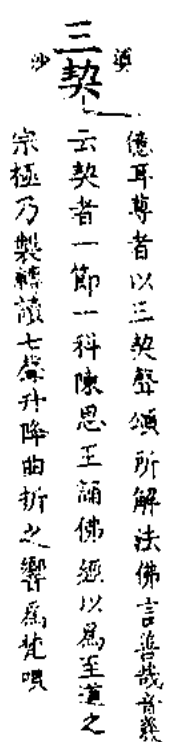 三契
億耳尊者以三契聲頌所解法佛言善哉音義
云契者一節一科陳思王誦佛經以為至道之
宗極乃製轉讀七聲升降曲折之響爲梵唄